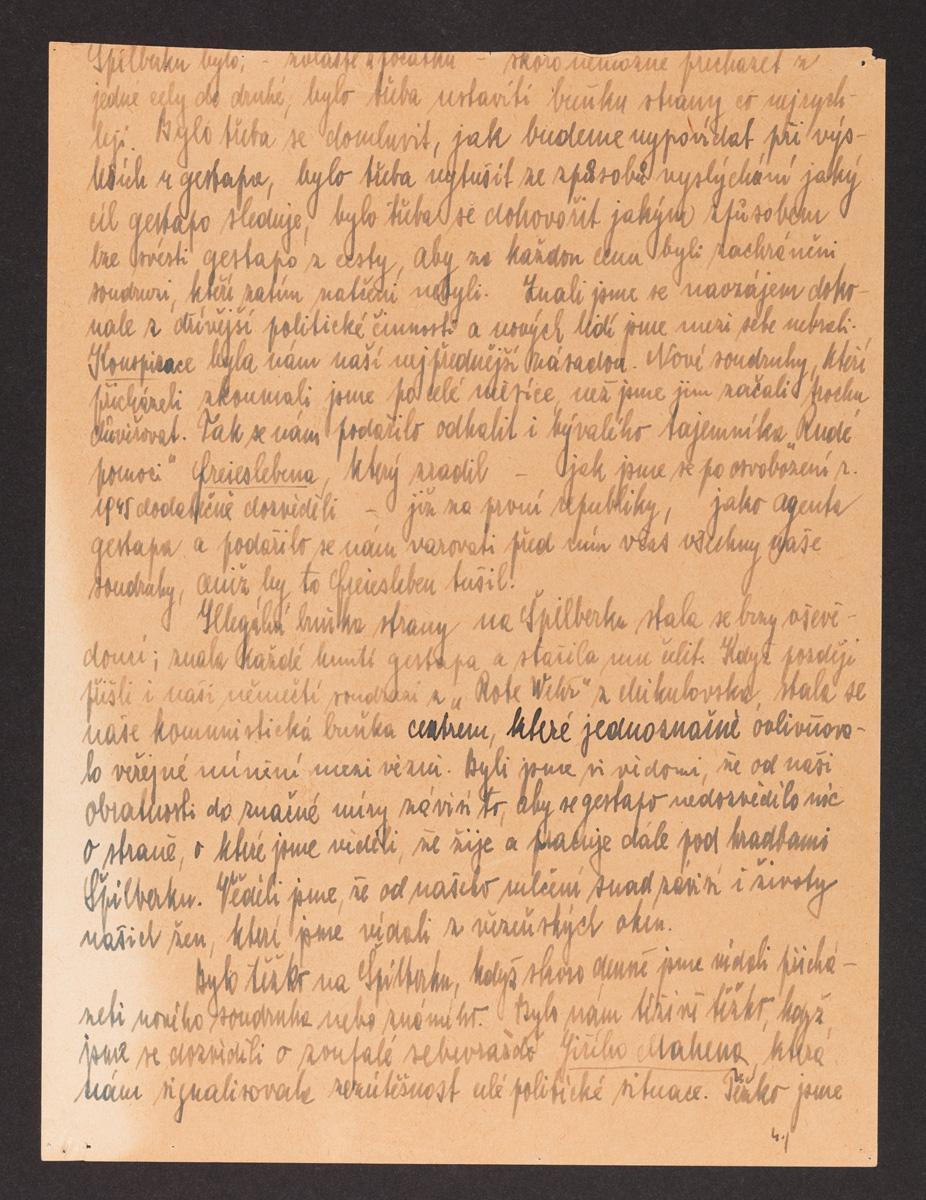 Špilberku bylo, - zvláště zpočátku - skoro nemožné přecházet z
jedné cely do druhé, bylo třeba ustaviti buňku strany co nejrych-
leji. Bylo třeba se domluvit, jak budeme vypovídat při výs-
leších u gestapa, bylo třeba vytušit ze způsobu vyslýchání jaký
cíl gestapo sleduje, bylo třeba se dohovořit jakým způsobem
lze svésti gestapo z cesty, aby za každou cenu byli zachráněni
soudruzi, kteří zatím zatčeni nebyli. Znali jsme se navzájem doko-
nale z dřívější politické činnosti a nových lidí jsme mezi sebe nebrali.
Konspirace byla nám naší nejpřednější zásadou. Nové soudruhy, kteří
přicházeli zkoumali jsme po celé měsíce, než jsme jim začali trochu
důvěřovat. Tak se nám podařilo odhalit i bývalého tajemníka "Rudé
pomoci" Freieslebena, který zradil - jak jsme se po osvobození r.
1945 dodatečně dozvěděli - již za první republiky, jako agenta
gestapa a podařilo se nám varovati před ním včas všechny naše
soudruhy, aniž by to Freiesleben tušil.
Illegální buňka strany na Špilberku stala se brzy vševě-
doucí; znala každé hnutí gestapa a stačila mu čelit. Když později
přišli i naši němečtí soudruzi z „Rote Wehr" z Mikulovska, stala se
naše komunistická buňka centrem, které jednoznačně ovlivňova-
lo veřejné mínění mezi vězni. Byli jsme si vědomi, že od naší
obratnosti do značné míry závisí to, aby se gestapo nedozvědělo nic
o straně, o které jsme věděli, že žije a pracuje dále pod hradbami
Špilberku. Věděli jsme, že od našeho mlčení snad závisí i životy
našich žen, které jsme vídali z vězeňských oken.
Bylo těžko na Špilberku, když skoro denně jsme vídali přichá-
zeti nového soudruha nebo známého. Bylo nám tíživě těžko, když
jsme se dozvěděli o zoufalé sebevraždě Jiřího Mahena, která
nám signalisovala neutěšenost celé politické situace. Těžko jsme
4.)